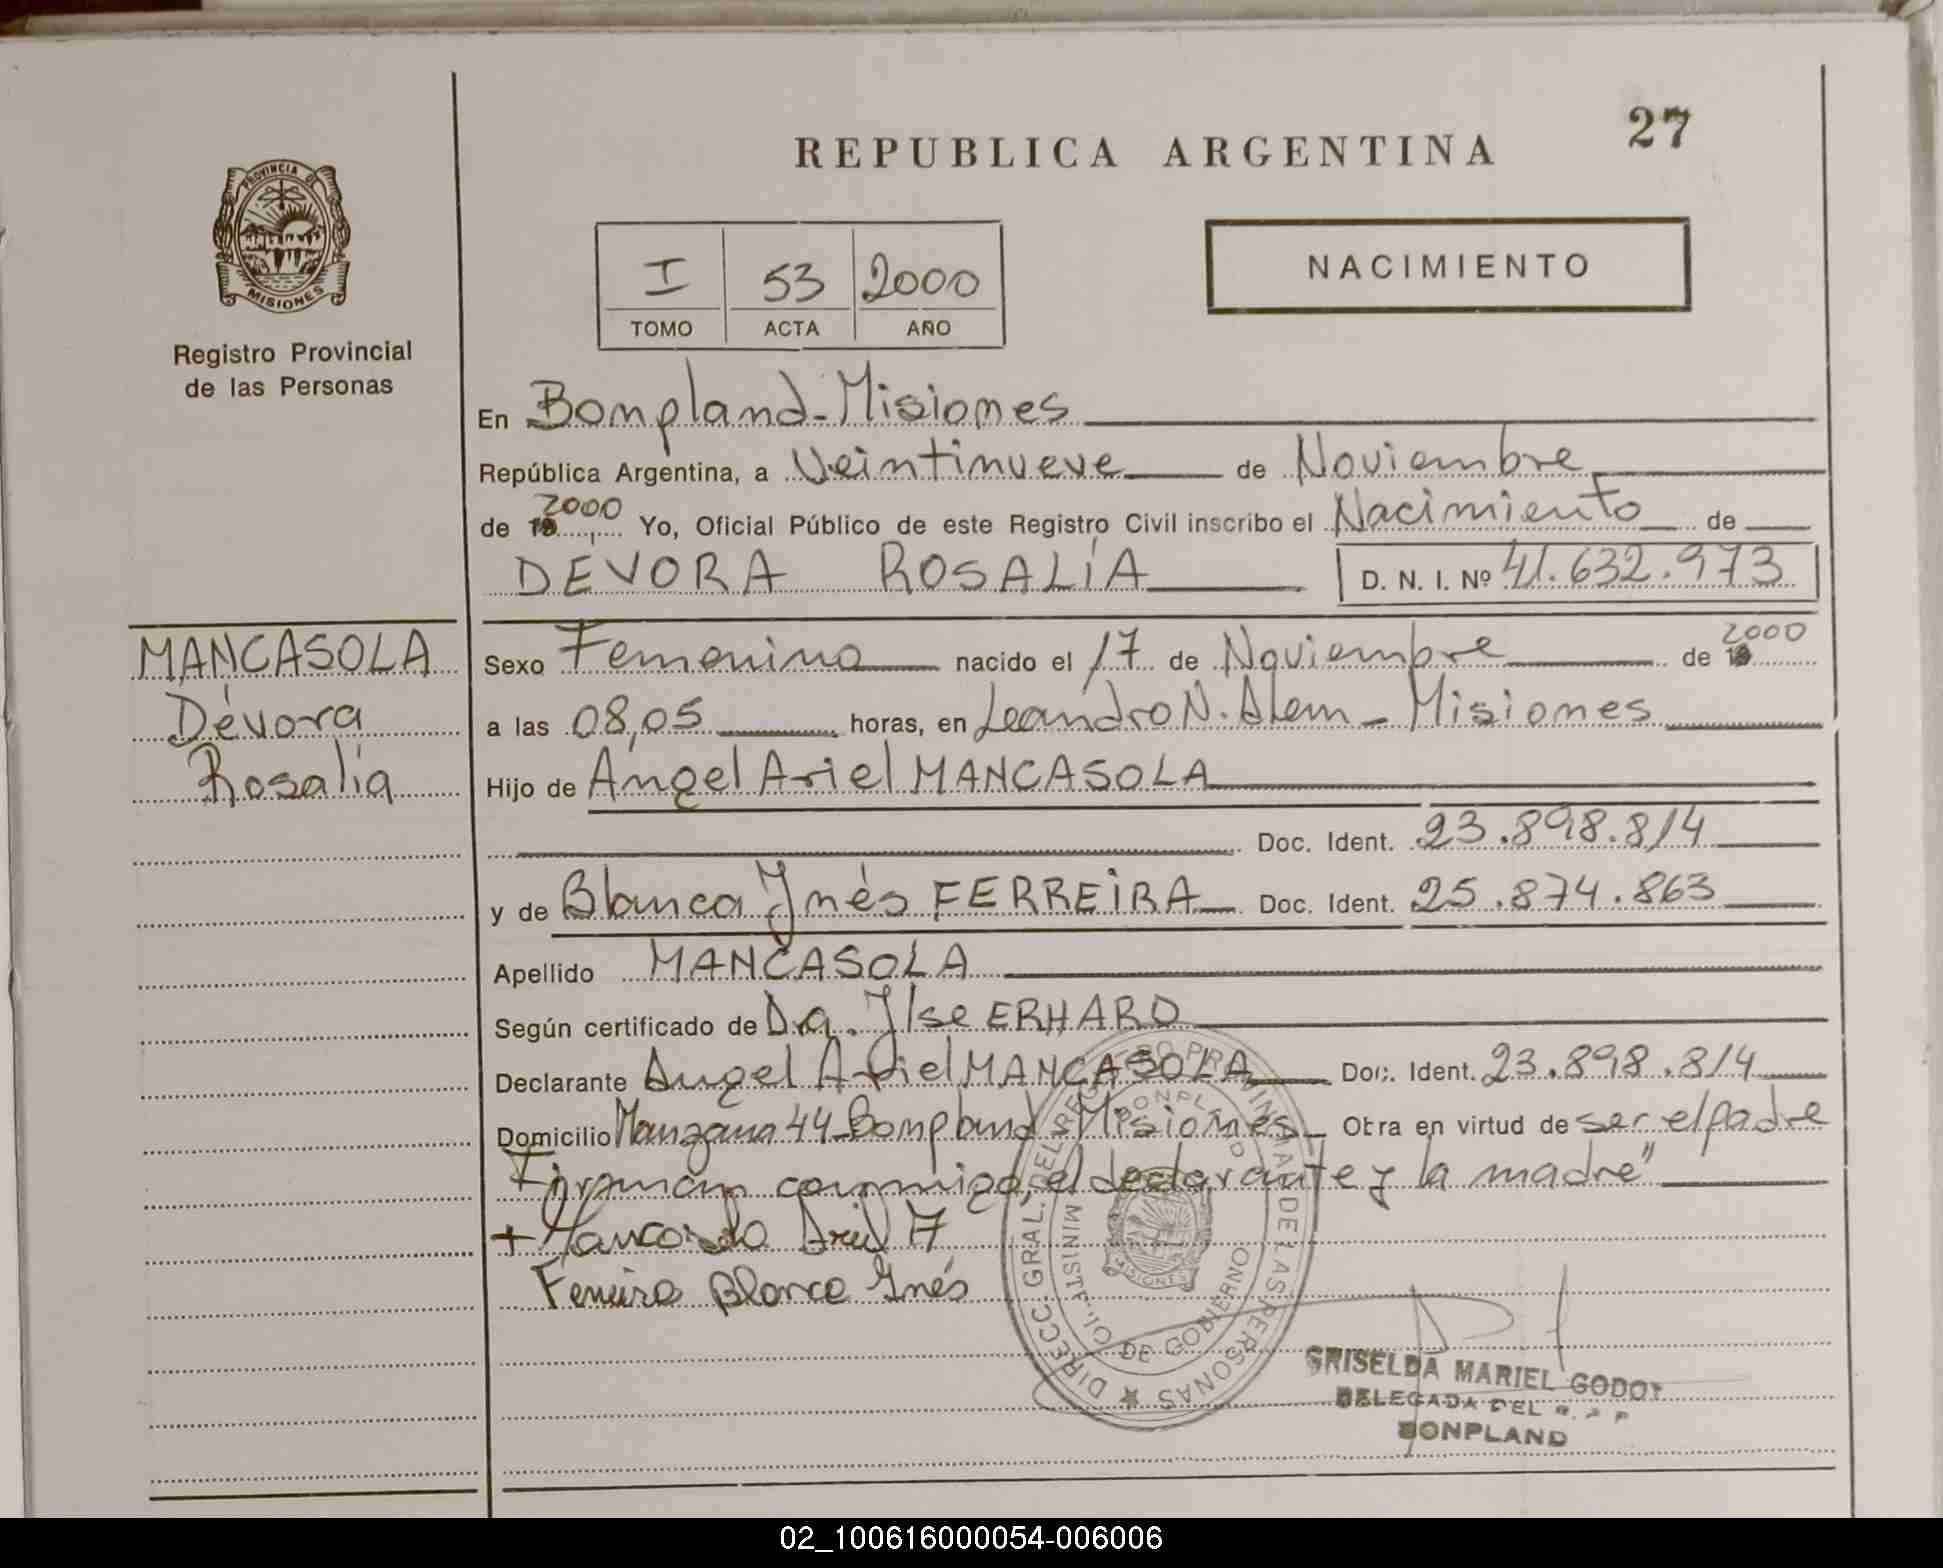 27
REPUBLICA ARGENTINA
PROVINCIA DE
MISIONES
Registro Provincial
de las Personas
I 53 2000
TOMO ACTA AÑO
NACIMIENTO
En Bompland-Misiones
República Argentina, a Veintinueve de Noviembre
de 19 2000 Yo, Oficial Público de este Registro Civil inscribo el Nacimiento de
DEVORA ROSALÍA D. N. I. Nº 41.632.973
MANCASOLA
Dévora
Rosalía
Sexo Femenino nacido el 17 de Noviembre de 19 2000
a las 08,05 horas, en Leandro N. Alem - Misiones
Hijo de Angel Ariel MANCASOLA
Doc. Ident. 23.898.814
y de Blanca Ynés FERREIRA Doc. Ident. 25.874.863
Apellido MANCASOLA
Según certificado de Dra. Ylse ERHARD
Declarante Angel Ariel MANCASOLA Doc. Ident. 23.898.814
Domicilio Manzana 44-Bompland-Misiones Otra en virtud de ser el padre
Firman conmigo, el declarante y la madre"
+ Mancasola Ariel A
Ferreira Blanca Ynés
DIRECC. GRAL. DEL REGISTRO PROVINCIAL DE LAS PERSONAS
MINISTERIO DE GOBIERNO
BONPLAND
MISIONES
GRISELDA MARIEL GODOY
DELEGADA DEL R. P. P
BONPLAND
02_100616000054-006006